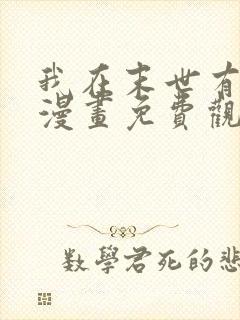 我在末世有
漫畫免費觀
数學君死的悲